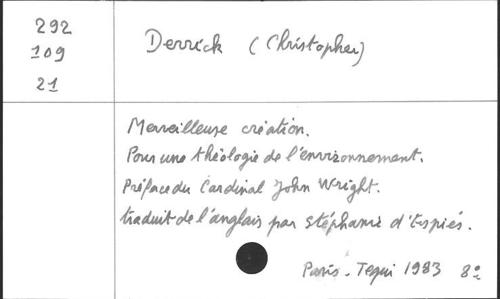 292
109
21
Derrick (Christopher)
Merveilleuse création.
Pour une théologie de l'environnement.
Préface du Cardinal John Wright.
traduit de l'anglais par Stéphanie d'Espiés.
Paris. Tequi 1983 8°